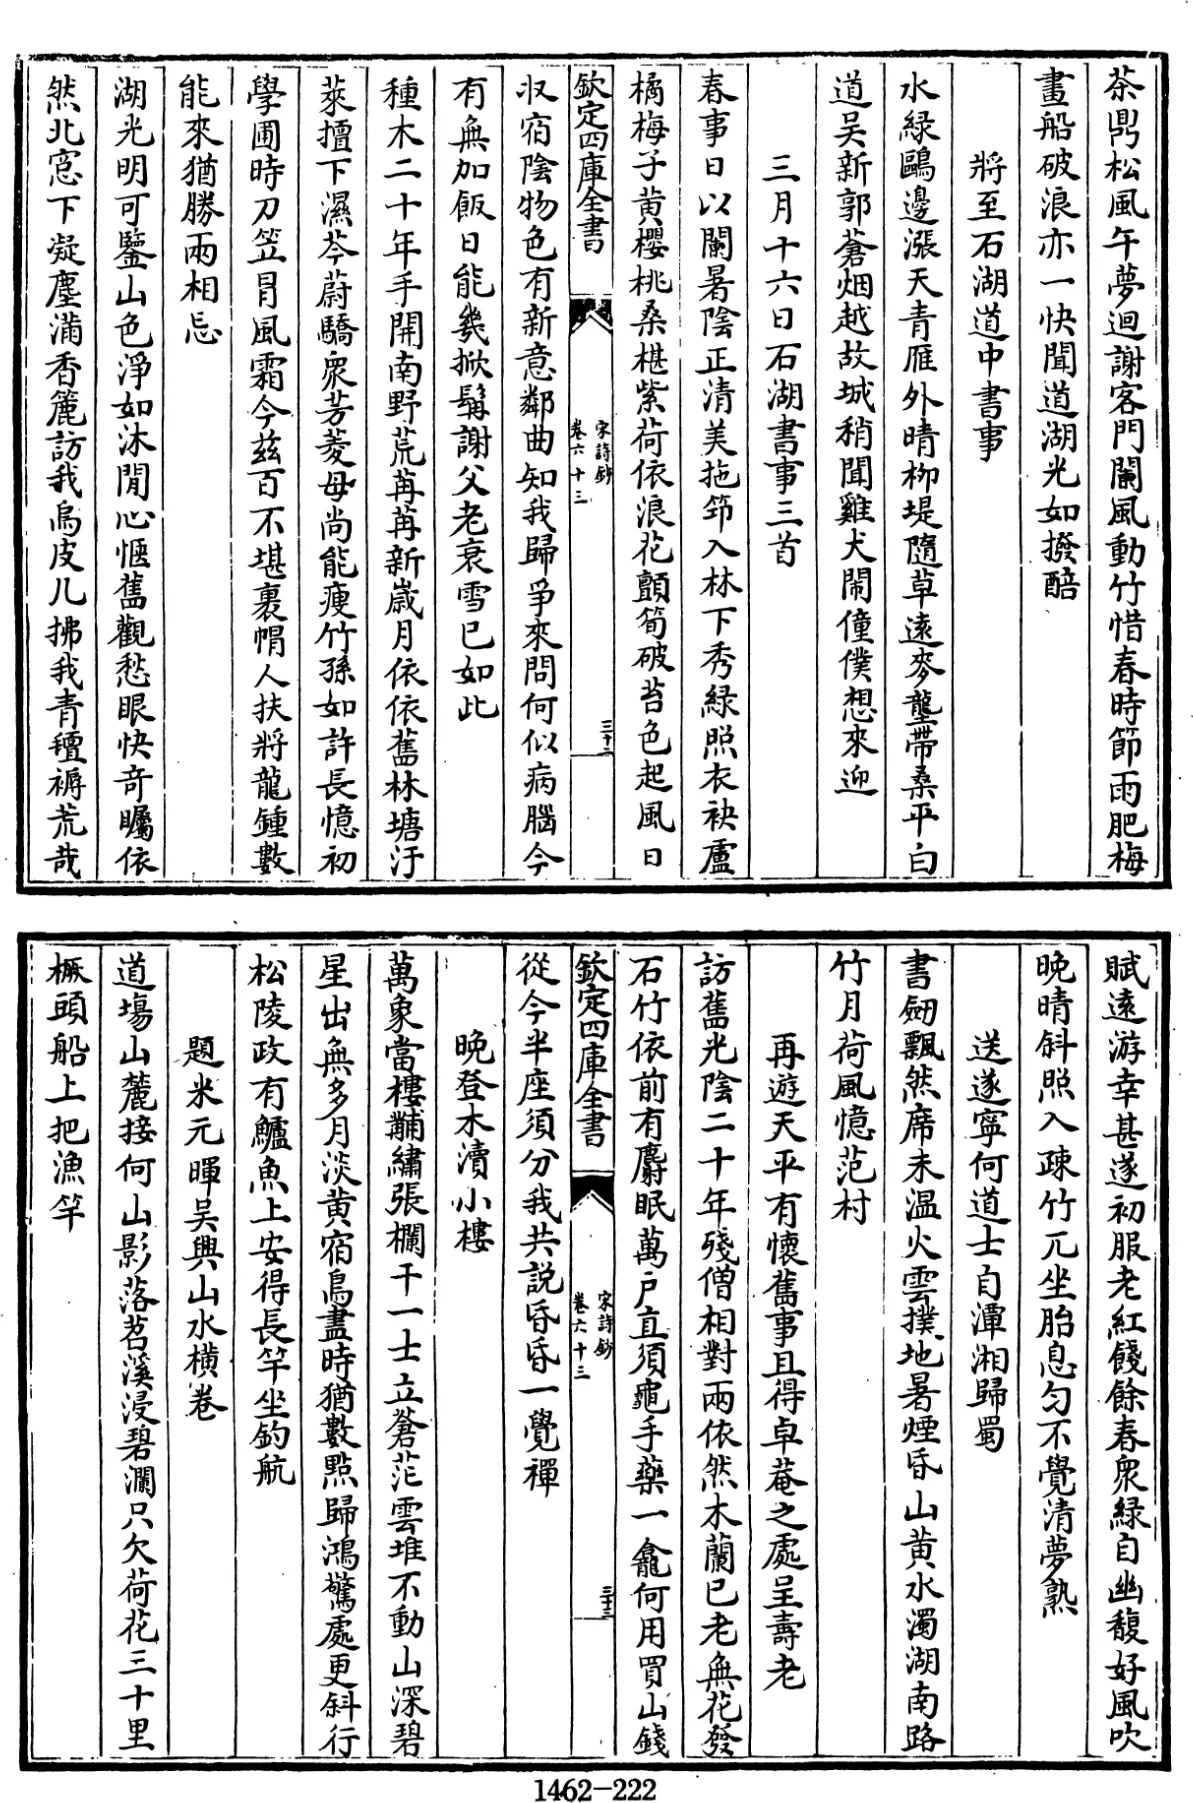 茶鼎松風午夢迴謝客門闌風動竹惜春時節雨肥梅
畫船破浪亦一快聞道湖光如撥醅
將至石湖道中書事
水緑鷗邊漲天青雁外晴栁堤隨草逺麥壟帶桑平白
道吴新郭蒼烟越故城稍聞雞犬鬧僮僕想來迎
三月十六日石湖書事三首
春事日以闌暑陰正清美拖筇入林下秀緑照衣袂盧
橘梅子黄櫻桃桑椹紫荷依浪花顫筍破苔色起風日
欽定四庫全書
宋詩鈔
卷六十三
三十二
収宿陰物色有新意鄰曲知我歸爭來問何似病腦今
有無加飯日能幾掀髯謝父老衰雪已如此
種木二十年手開南野荒苒苒新嵗月依依舊林塘汙
萊擅下濕芩蔚驕衆芳菱母尚能瘦竹孫如許長憶初
學圃時刀笠冒風霜今兹百不堪裹㡌人扶將龍鍾數
能來猶勝兩相忘
湖光明可鑒山色淨如沐閒心愜舊觀愁眼快竒矚依
然北窓下凝塵滿香篦訪我烏皮几拂我青氊褥荒哉
賦逺游幸甚遂初服老紅餞餘春衆緑自幽馥好風吹
晩晴斜照入疎竹兀坐胎息匀不覺清夢熟
送遂寧何道士自潭湘歸蜀
書劒飄然席未温火雲撲地暑煙昏山黄水濁湖南路
竹月荷風憶范村
再遊天平有懷舊事且得卓菴之處呈壽老
訪舊光陰二十年殘僧相對兩依然木蘭已老無花發
石竹依前有麝眠萬户直須龜手藥一龕何用買山錢
欽定四庫全書
宋詩鈔
卷六十三
三十三
從今半座須分我共説昏昏一覺禪
晩登木瀆小樓
萬象當樓黼繡張欄干一士立蒼茫雲堆不動山深碧
星出無多月淡黄宿鳥盡時猶數點歸鴻驚處更斜行
松陵政有鱸魚上安得長竿坐釣航
題米元暉吴興山水横卷
道場山麓接何山影落苕溪浸碧瀾只欠荷花三十里
橛頭船上把漁竿
1462-222